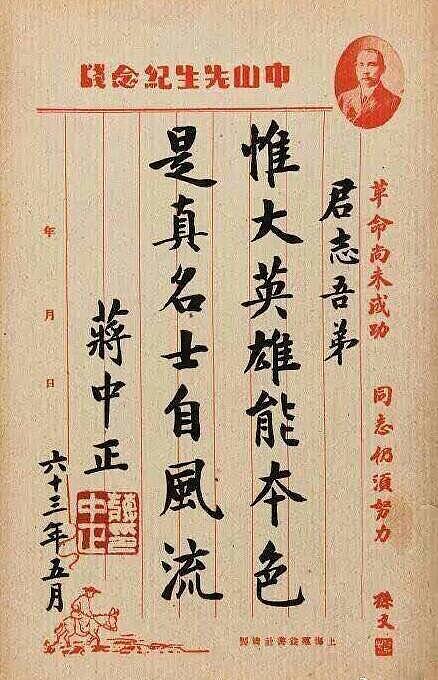 中山先生紀念牋
革命尚未成功 同志仍須努力
孫文
君志吾弟
惟大英雄能本色
是真名士自風流
蔣中正
六十三年五月
年 月 日
蔣中正